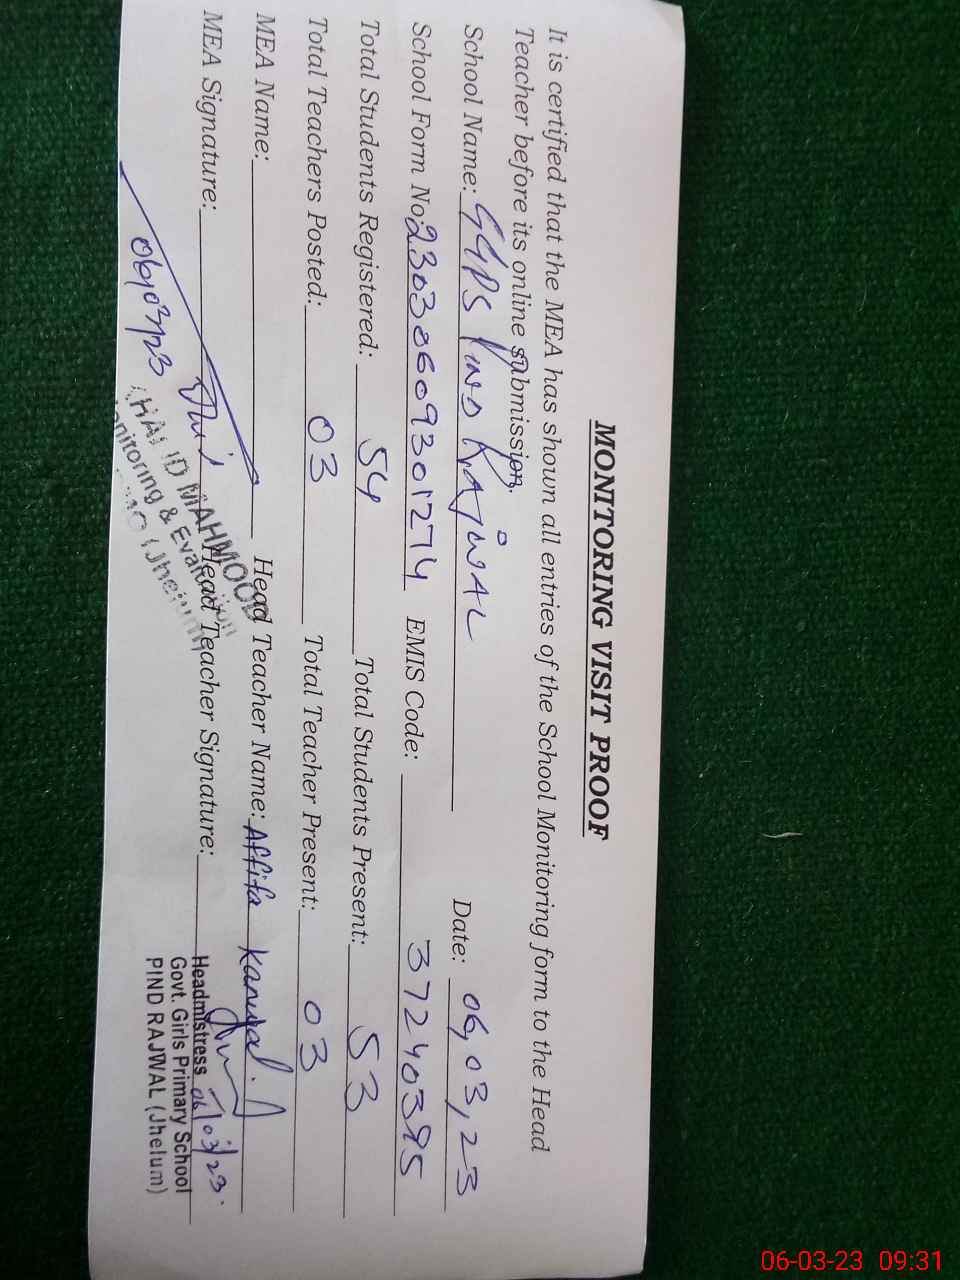 MONITORING VISIT PROOF
It is certified that the MEA has shown all entries of the School Monitoring form to the Head
Teacher before its online submission.
School Name: GGPS Pind Rajwal Date: 06,03,23
School Form No: 23030609301274 EMIS Code: 37240395
Total Students Registered: 54 Total Students Present: 53
Total Teachers Posted: 03 Total Teacher Present: 03
MEA Name: Head Teacher Name: Affifa Kanwal.
MEA Signature: Head Teacher Signature:
06/03/23
KHALID MAHMOOD
Monitoring & Evaluation
(Jhelum)
Headmistress 06/03/23.
Govt. Girls Primary School
PIND RAJWAL (Jhelum)
06-03-23 09:31